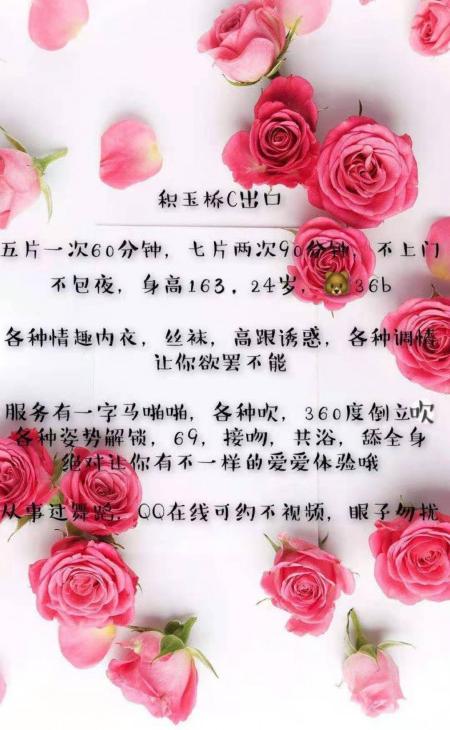 积玉桥C出口
五片一次60分钟，七片两次90分钟，不上门
不包夜，身高163，24岁，🐻36b
各种情趣内衣，丝袜，高跟诱惑，各种调情
让你欲罢不能
服务有一字马啪啪，各种吹，360度倒立吹
各种姿势解锁，69，接吻，共浴，舔全身
绝对让你有不一样的爱爱体验哦
从事过舞蹈，QQ在线可约不视频，眼子勿扰